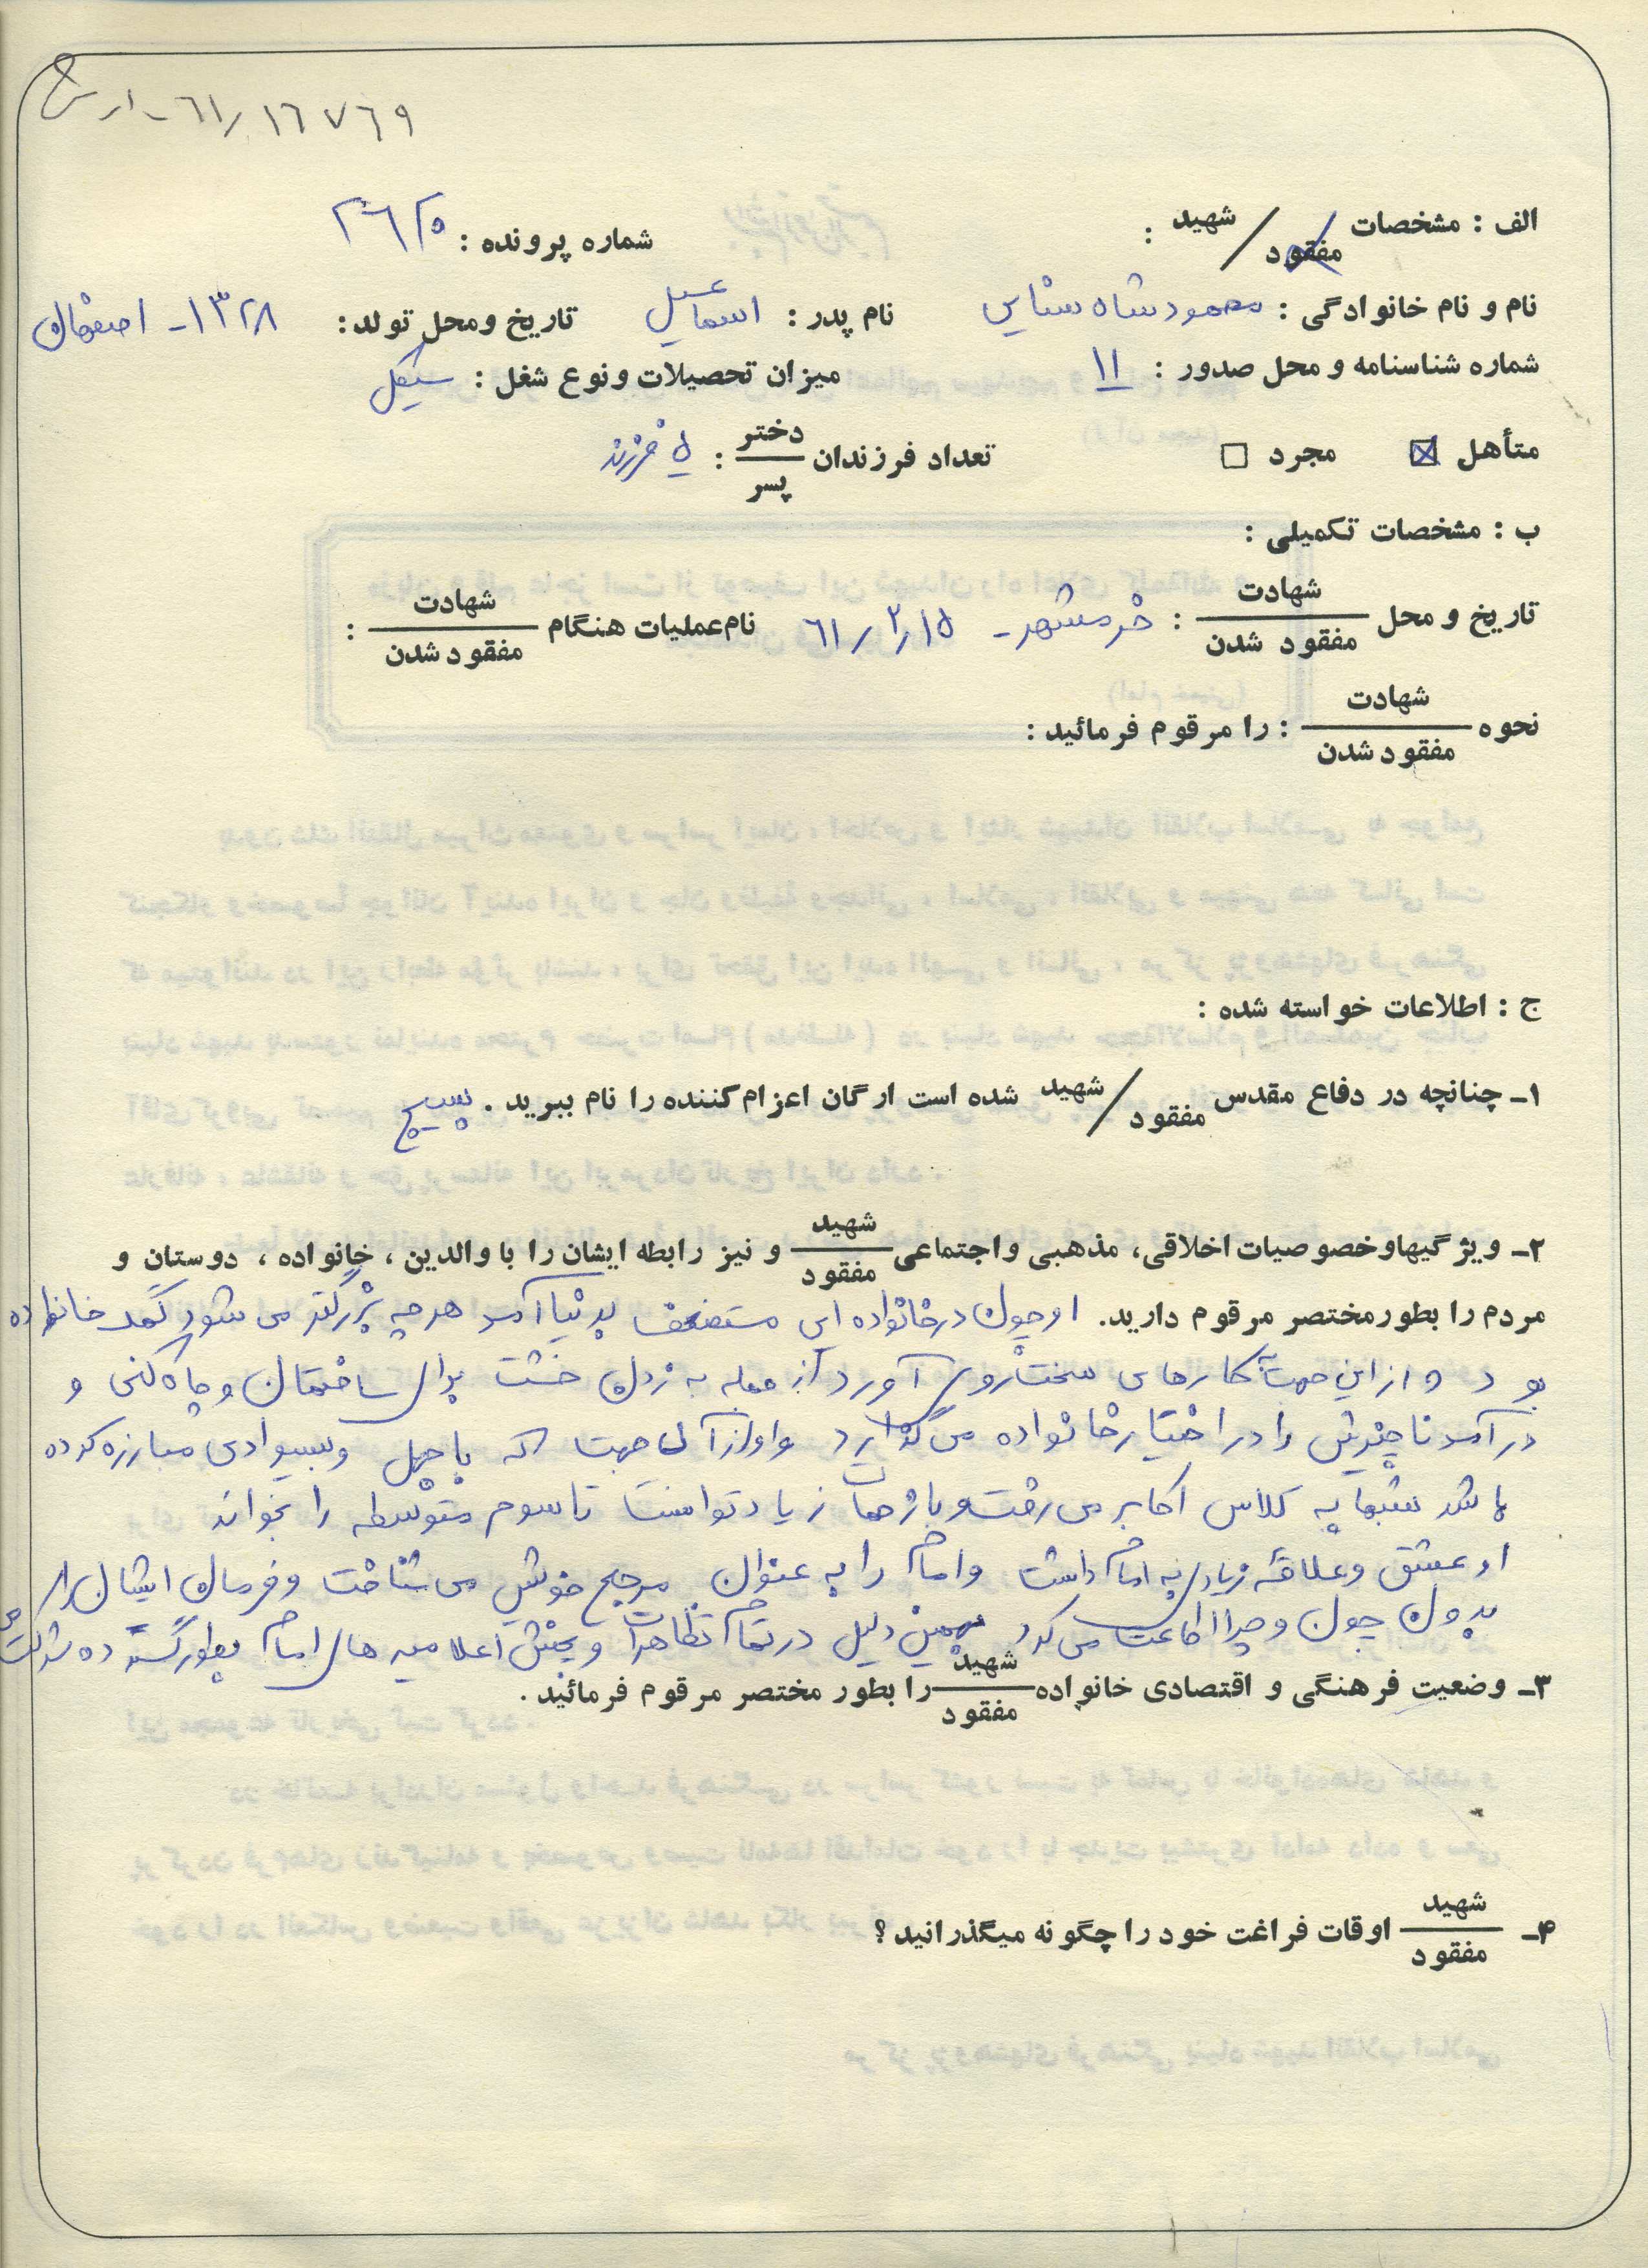 ۶۱/۱۶۷۶۹
الف : مشخصات شهید / مفقود :
شماره پرونده :
نام و نام خانوادگی : محمود شاه سنایی نام پدر : اسماعیل تاریخ ومحل تولد : ۱۳۲۸ - اصفهان
شماره شناسنامه و محل صدور : ۱۱ میزان تحصیلات ونوع شغل : سیکل
متأهل ☒ مجرد ☐ تعداد فرزندان دختر / پسر : ۵ فرزند
ب : مشخصات تکمیلی :
تاریخ و محل شهادت / مفقود شدن : خرمشهر - ۶۱/۲/۱۵ نام عملیات هنگام شهادت / مفقود شدن :
نحوه شهادت / مفقود شدن : را مرقوم فرمائید :
ج : اطلاعات خواسته شده :
۱- چنانچه در دفاع مقدس شهید / مفقود شده است ارگان اعزام کننده را نام ببرید . بسیج
۲- ویژگیهاوخصوصیات اخلاقی، مذهبی واجتماعی شهید / مفقود و نیز رابطه ایشان را با والدین ، خانواده ، دوستان و
مردم را بطورمختصر مرقوم دارید. او چون در خانواده ای مستضعف بدنیا آمد هر چه بزرگتر می شود کمک خانواده
بود و از این جهت به کارهای سخت روی آورد از جمله به زدن خشت برای ساختمان و چاه کنی و
درآمد ناچیزش را در اختیار خانواده می گذارد و او از آن جهت که با جهل و بیسوادی مبارزه کرده
باشد شبها به کلاس اکابر می رفت و با زحمات زیاد توانست تا سوم متوسطه را بخواند
او عشق و علاقه زیادی به امام داشت و امام را به عنوان مرجع خویش می شناخت و فرمان ایشان را
بدون چون و چرا اطاعت می کرد بهمین دلیل در تمام تظاهرات و پخش اعلامیه های امام بطور گسترده شرکت
۳- وضعیت فرهنگی و اقتصادی خانواده شهید / مفقود را بطور مختصر مرقوم فرمائید .
۴- شهید / مفقود اوقات فراغت خود را چگونه میگذرانید ؟